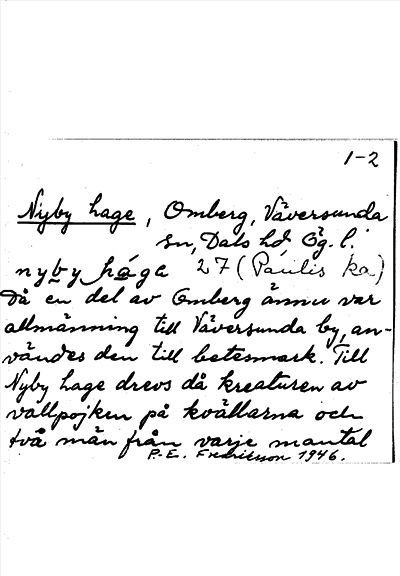 1-2
Nyby hage, Omberg, Väversunda
sn, Dals hd Ög. l.
nyby hága 27 (Paulis ka)
Då en del av Omberg ännu var
allmänning till Väversunda by, an-
vändes den till betesmark. Till
Nyby hage drevs då kreaturen av
vallpojken på kvällarna och
två män från varje mantal
P. E. Fredriksson 1946.